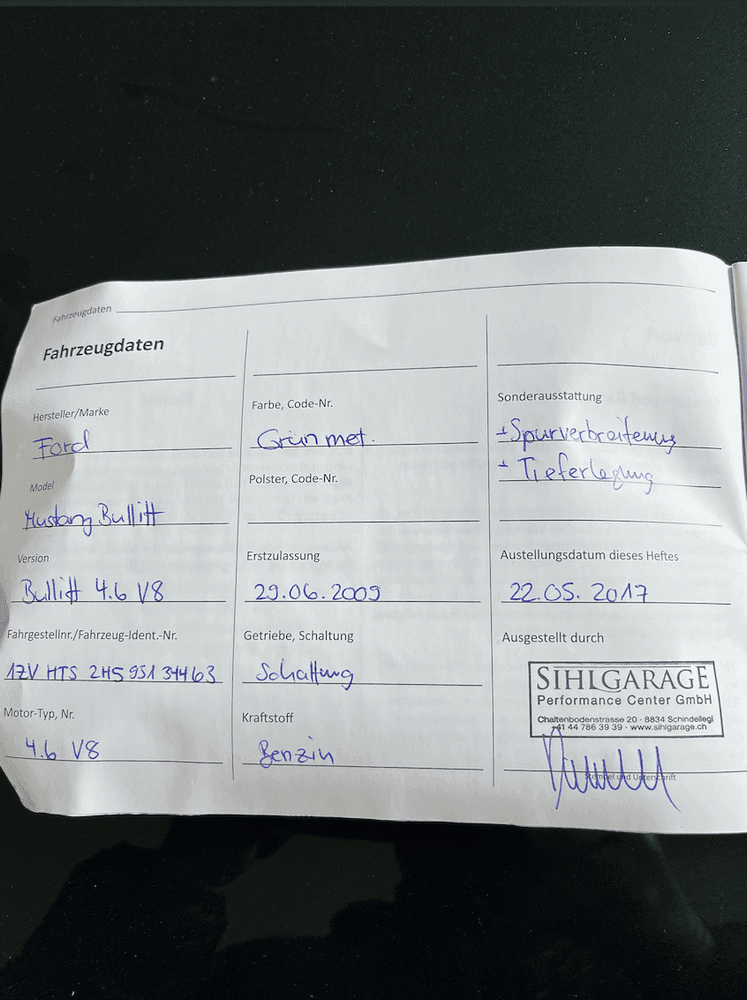 Fahrzeugdaten
Fahrzeugdaten
Hersteller/Marke
Ford
Model
Mustang Bullitt
Version
Bullitt 4.6 V8
Fahrgestellnr./Fahrzeug-Ident.-Nr.
1ZV HTS 2H5 951 34463
Motor-Typ, Nr.
4.6 V8
Farbe, Code-Nr.
Grün met.
Polster, Code-Nr.
Erstzulassung
29.06.2009
Getriebe, Schaltung
Schaltung
Kraftstoff
Benzin
Sonderausstattung
+ Spurverbreiterung
+ Tieferlegung
Austellungsdatum dieses Heftes
22.05.2017
Ausgestellt durch
SIHLGARAGE
Performance Center GmbH
Chaltenbodenstrasse 20 · 8834 Schindellegi
+41 44 786 39 39 · www.sihlgarage.ch
Stempel und Unterschrift